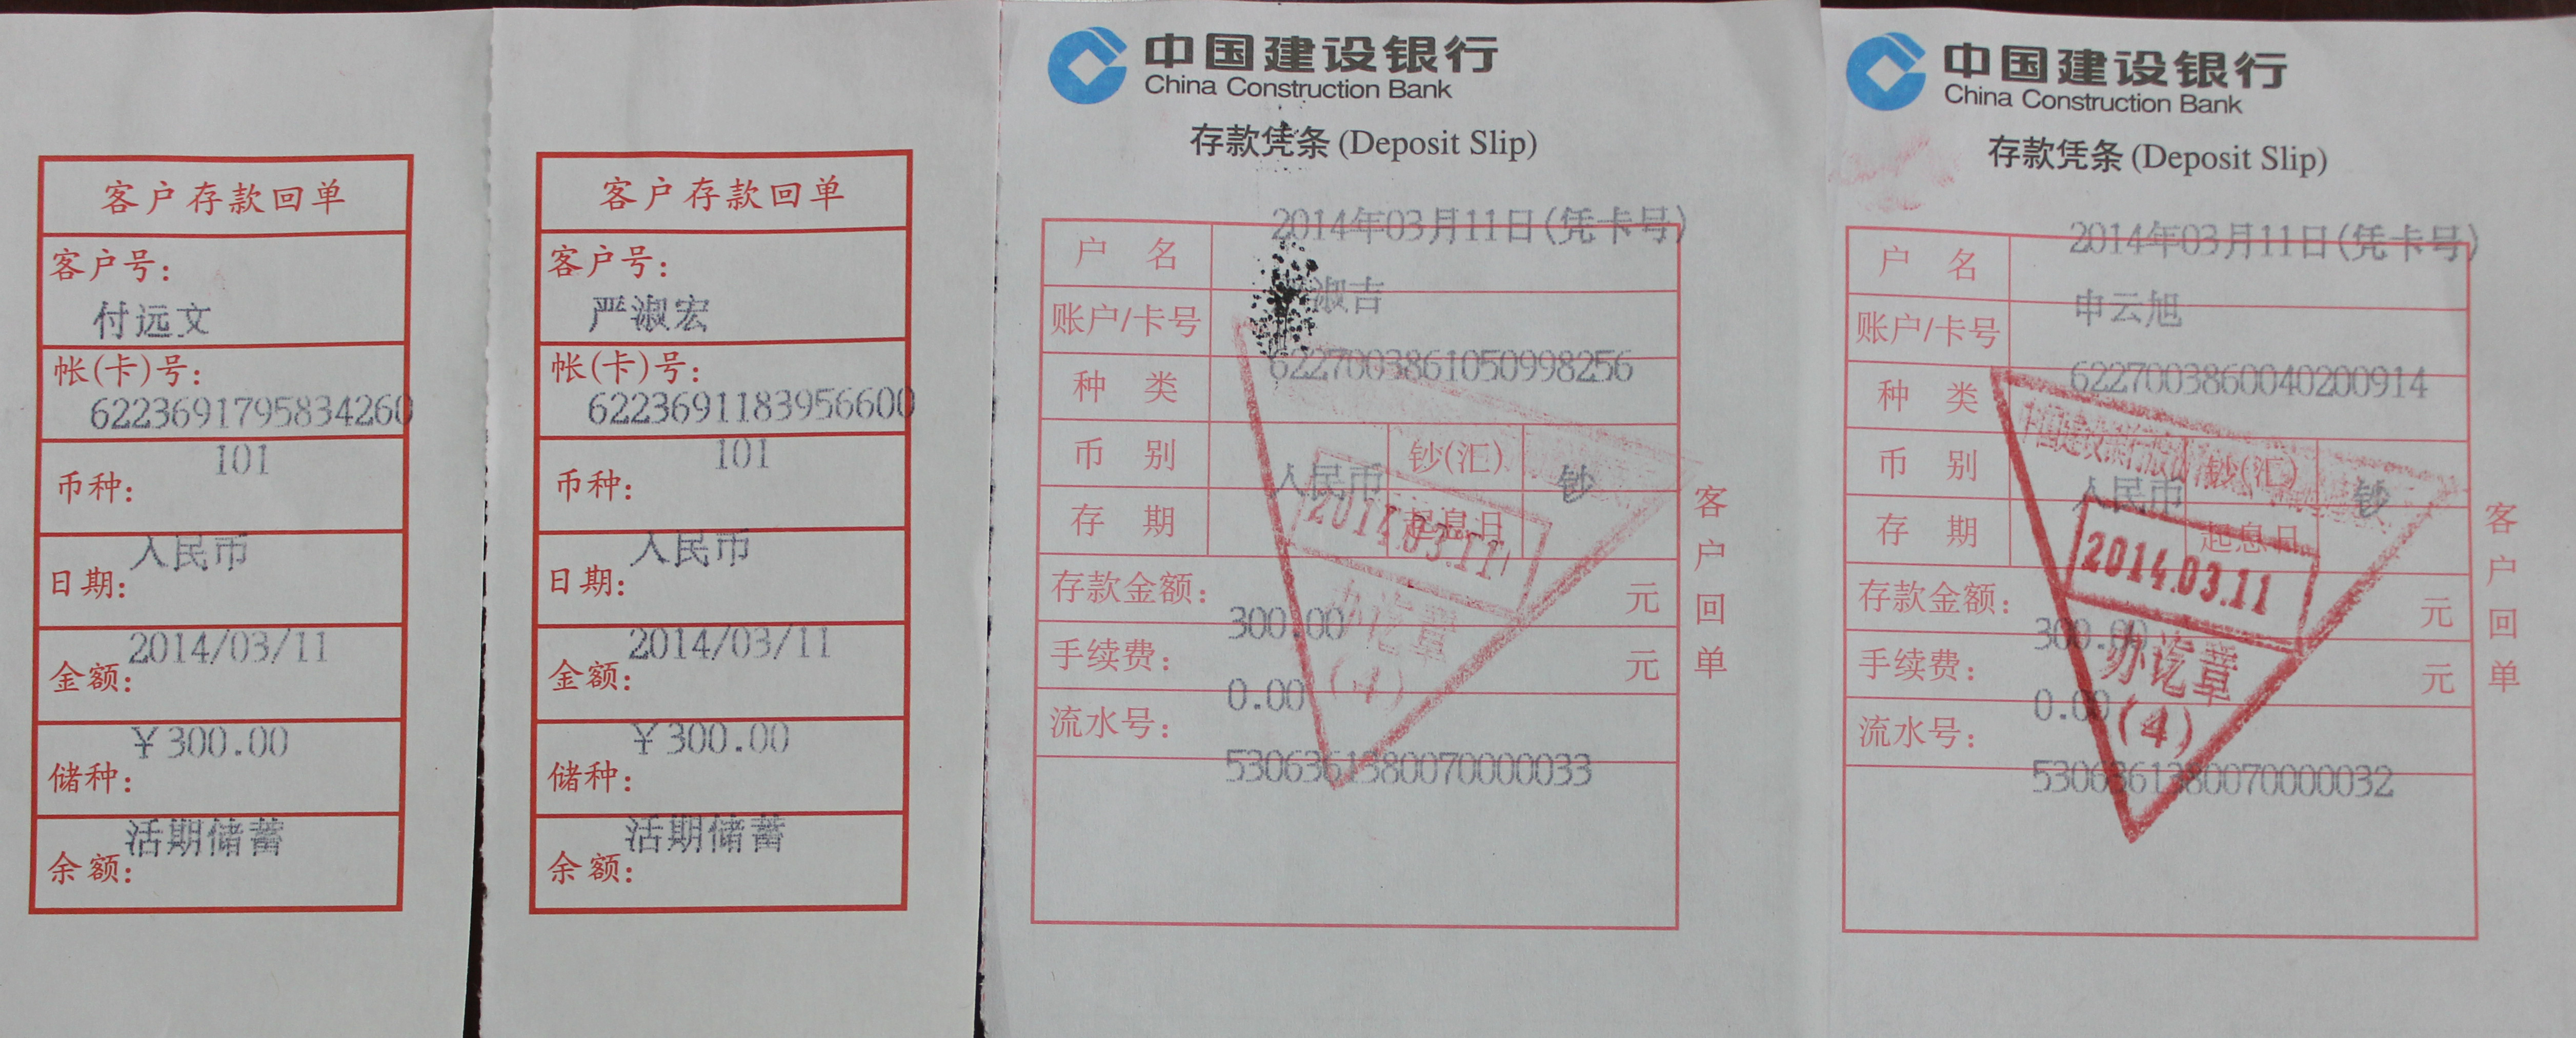 客户存款回单
客户号:
付远文
帐(卡)号:
6223691795834260
101
币种:
人民币
日期:
2014/03/11
金额:
￥300.00
储种:
活期储蓄
余额:
客户存款回单
客户号:
严淑宏
帐(卡)号:
6223691183956600
101
币种:
人民币
日期:
2014/03/11
金额:
￥300.00
储种:
活期储蓄
余额:
中国建设银行
China Construction Bank
存款凭条 (Deposit Slip)
2014年03月11日(凭卡号)
户 名
淑吉
账户/卡号
6227003861050998256
种 类
币 别
人民币
钞(汇)
钞
存 期
起息日
2014.03.11
存款金额:
300.00
元
办讫章
手续费:
0.00
元
(4)
流水号:
5306361380070000033
客户回单
中国建设银行
China Construction Bank
存款凭条 (Deposit Slip)
2014年03月11日(凭卡号)
户 名
申云旭
账户/卡号
6227003860040200914
种 类
币 别
人民币
钞(汇)
钞
存 期
起息日
2014.03.11
存款金额:
300.00
元
办讫章
手续费:
0.00
元
(4)
流水号:
5306361380070000032
客户回单